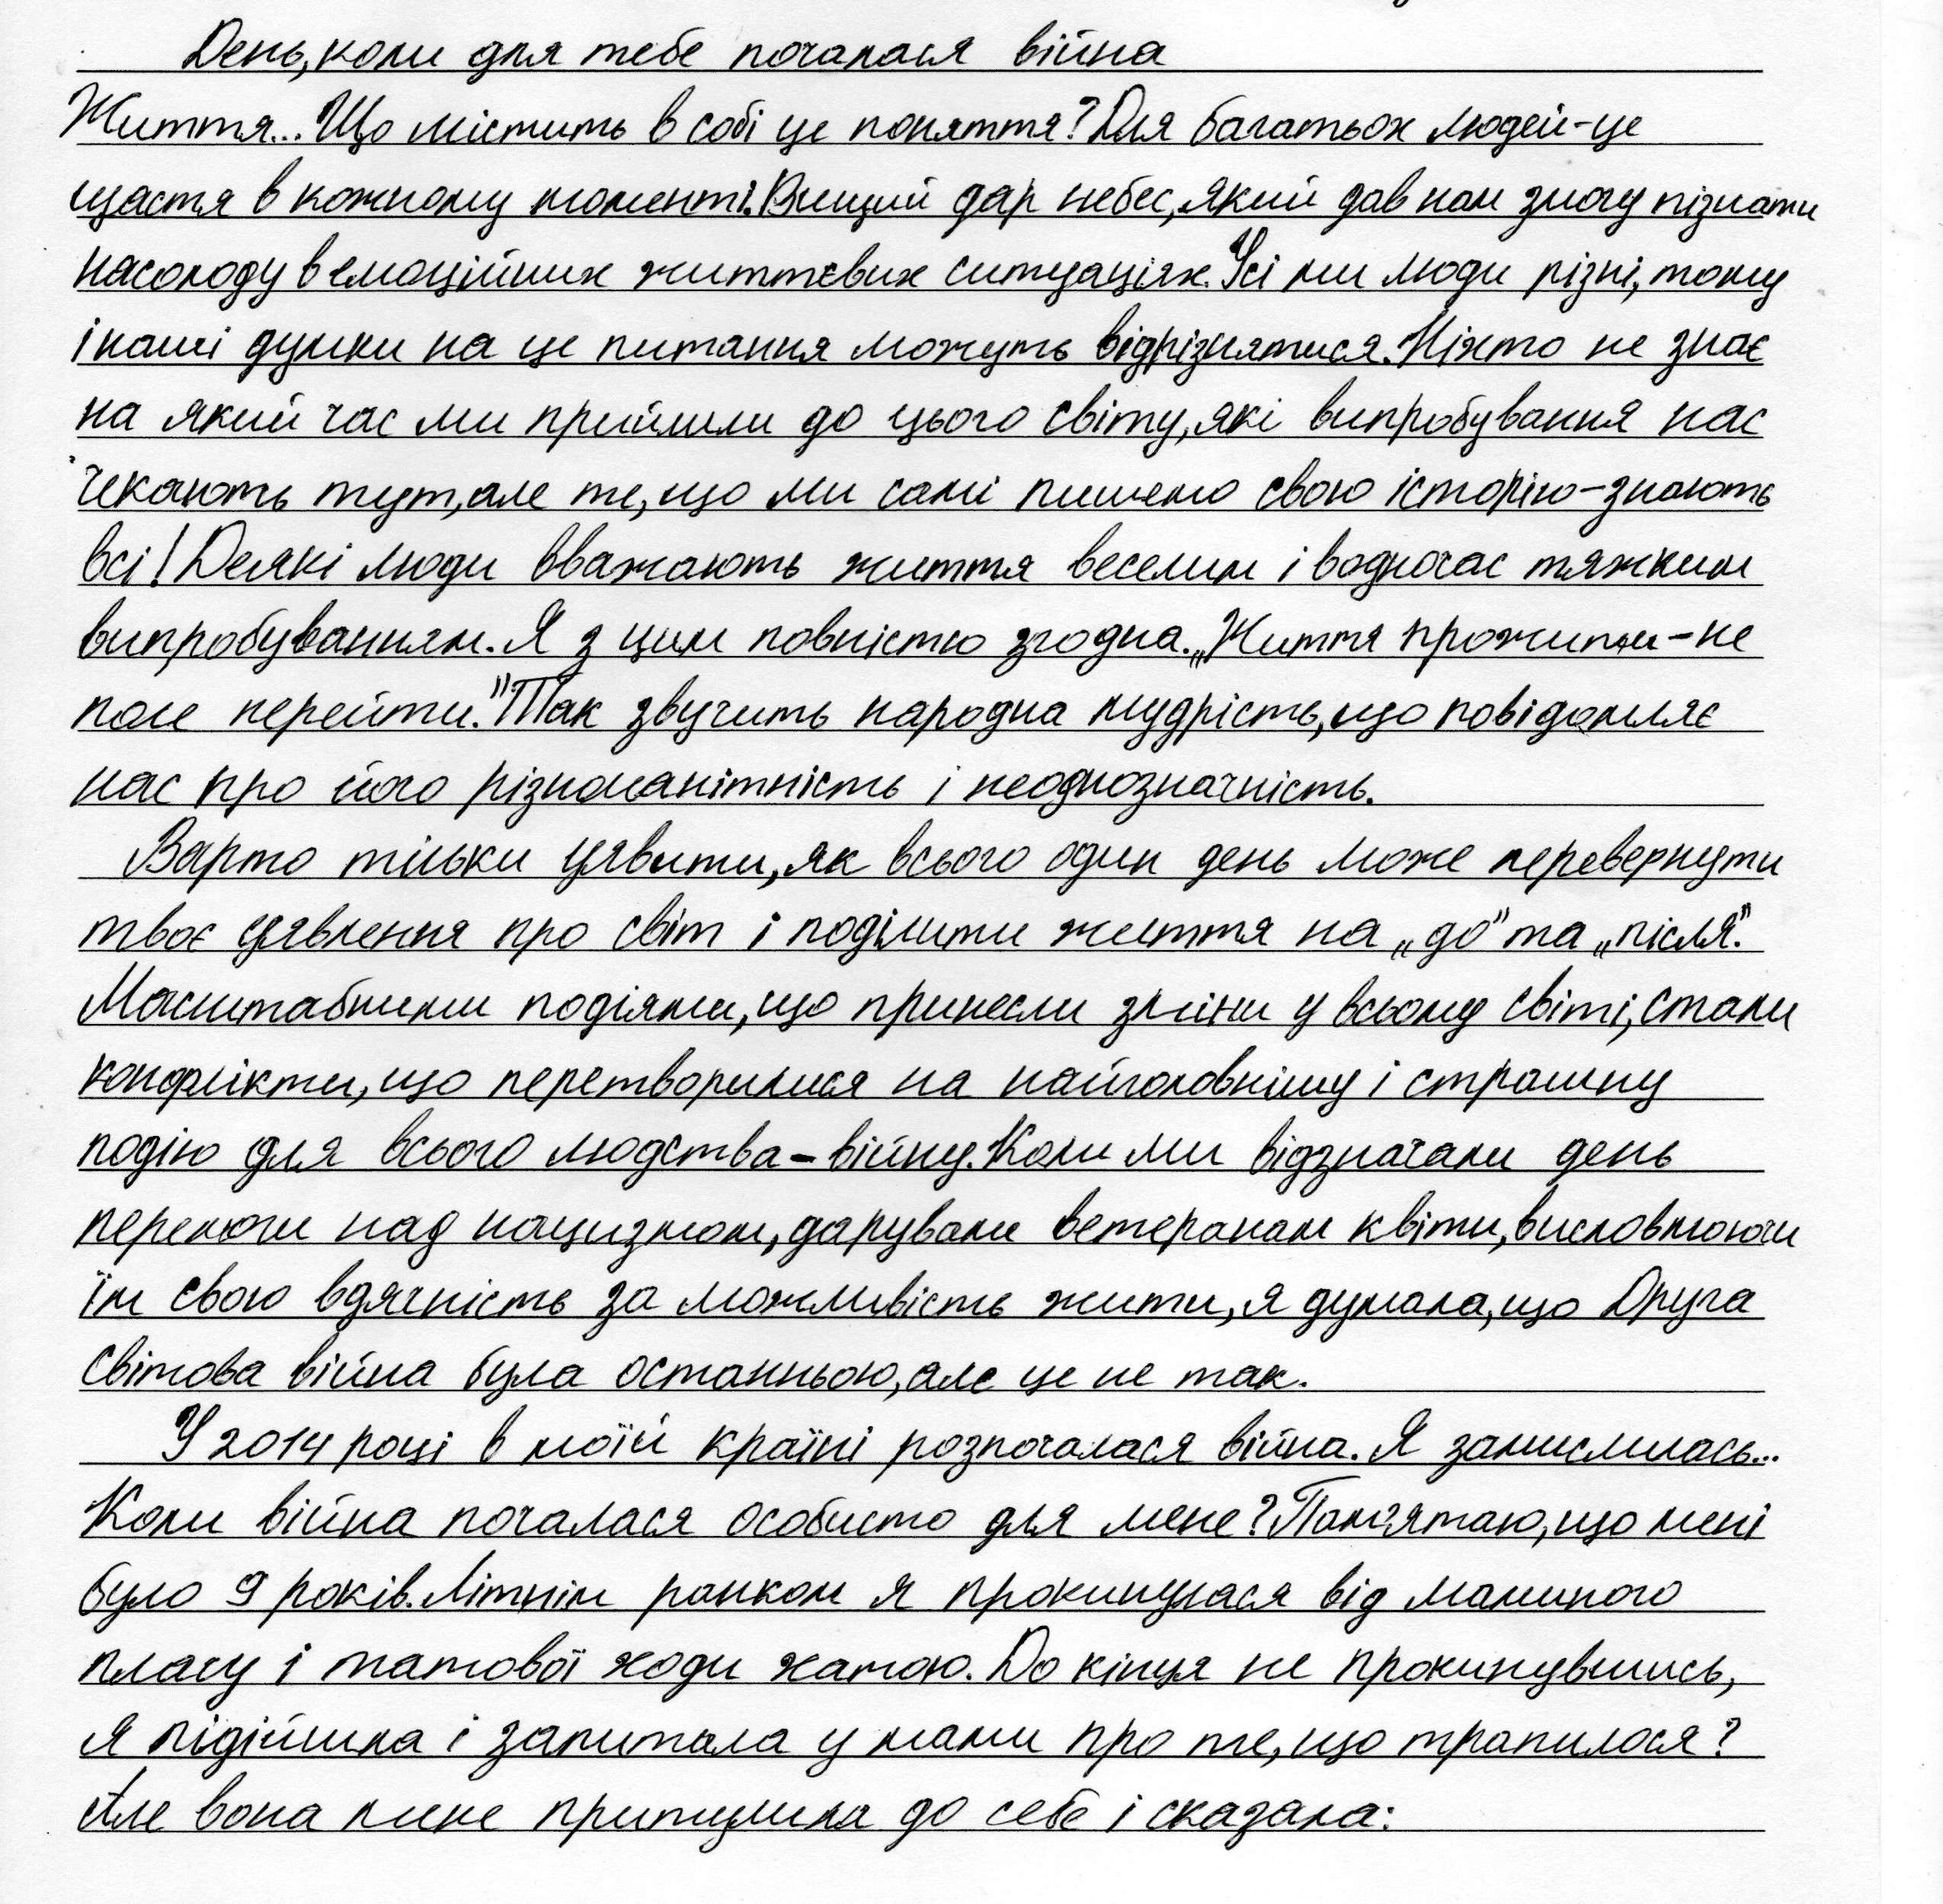 День, коли для тебе почалася війна
Життя... Що містить в собі це поняття? Для багатьох людей-це
щастя в кожному моменті. Вищий дар небес, який дав нам змогу пізнати
насолоду в емоційних життєвих ситуаціях. Усі ми люди різні, тому
і наші думки на це питання можуть відрізнятися. Ніхто не знає
на який час ми прийшли до цього світу, які випробування нас
чекають тут, але те, що ми самі пишемо свою історію-знають
всі! Деякі люди вважають життя веселим і водночас тяжким
випробуванням. Я з цим повністю згодна. „Життя прожити-не
поле перейти." Так звучить народна мудрість, що повідомляє
нас про його різноманітність і неоднозначність.
Варто тільки уявити, як всього один день може перевернути
твоє уявлення про світ і поділити життя на „до" та „після".
Масштабними подіями, що принесли зміни у всьому світі, стали
конфлікти, що перетворилися на найголовнішу і страшну
подію для всього людства-війну. Коли ми відзначали день
перемоги над нацизмом, дарували ветеранам квіти, висловлюючи
їм свою вдячність за можливість жити, я думала, що Друга
світова війна була останньою, але це не так.
У 2014 році в моїй країні розпочалася війна. Я замислилась...
Коли війна почалася особисто для мене? Пам'ятаю, що мені
було 9 років. Літнім ранком я прокинулася від маминого
плачу і татової ходи хатою. До кінця не прокинувшись,
я підійшла і запитала у мами про те, що трапилося?
Але вона лише притулила до себе і сказала: